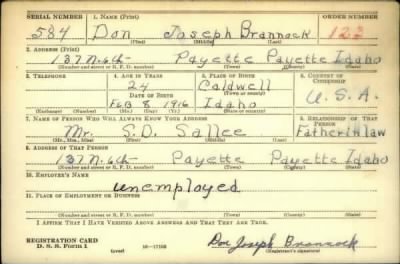 SERIAL NUMBER 1. NAME (Print) ORDER NUMBER
584 Don Joseph Brannock 123
(First) (Middle) (Last)
2. ADDRESS (Print)
137 N. 6th Payette Payette Idaho
(Number and street or R. F. D. number) (Town) (County) (State)
3. TELEPHONE 4. AGE IN YEARS 5. PLACE OF BIRTH 6. COUNTRY OF CITIZENSHIP
24 Caldwell
DATE OF BIRTH (Town or county)
Feb 8 1916 Idaho U.S.A.
(Exchange) (Number) (Mo.) (Day) (Yr.) (State or country)
7. NAME OF PERSON WHO WILL ALWAYS KNOW YOUR ADDRESS 8. RELATIONSHIP OF THAT PERSON
Mr. S.D. Sallee Father in law
(Mr., Mrs., Miss) (First) (Middle) (Last)
9. ADDRESS OF THAT PERSON
137 N. 6th Payette Payette Idaho
(Number and street or R. F. D. number) (Town) (County) (State)
10. EMPLOYER'S NAME
unemployed
11. PLACE OF EMPLOYMENT OR BUSINESS
(Number and street or R. F. D. number) (Town) (County) (State)
I AFFIRM THAT I HAVE VERIFIED ABOVE ANSWERS AND THAT THEY ARE TRUE.
REGISTRATION CARD Don Joseph Brannock
D. S. S. Form 1 (over) 16—17105 (Registrant's signature)